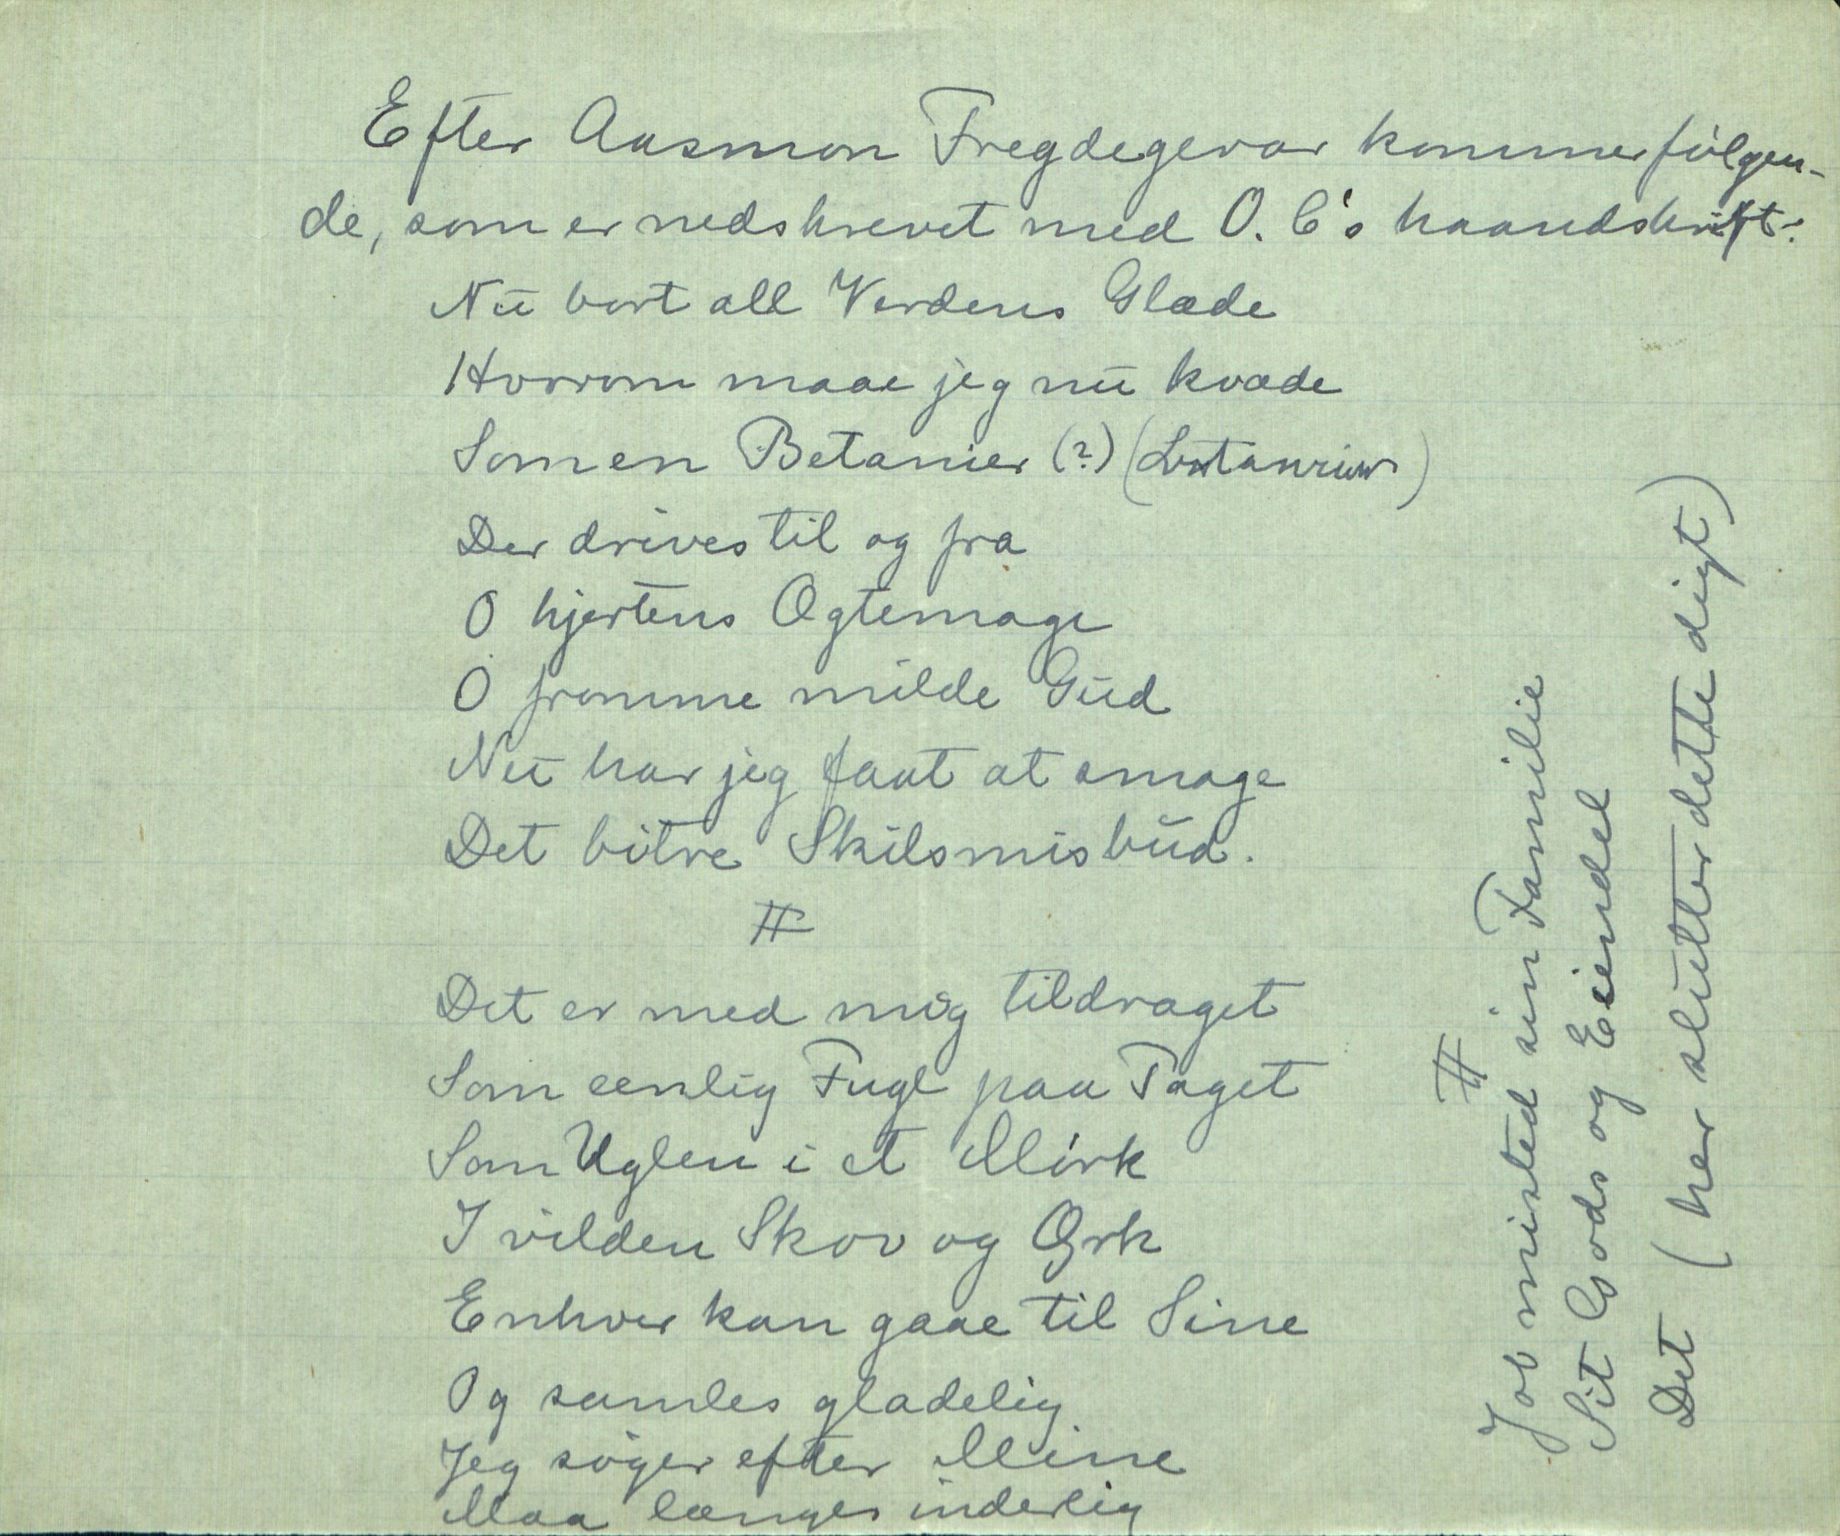 Efter Aasmon Fregdegevar kommer følgen-
de, som er nedskrevet med O. C's haandskrift:
Nu bort all Verdens Glæde
Hvorom maae jeg nu kvæde
Som en Betanier (?) (
Der drives til og fra
O hjertens Ægtemage
O fromme milde Gud
Nu har jeg faat at smage
Det bitre Skilsmisbud.
#
Det er med mig tildraget
Som eenlig Fugl paa Taget
Som Uglen i et Mørk
I vilden Skov og Ørk
Enhver kan gaae til Sine
Og samles gladelig
Jeg søger efter Mine
Maa længes inderlig
#
Job misted sin Familie
Sit Gods og Eiendel
Det (her slutter dette digt)